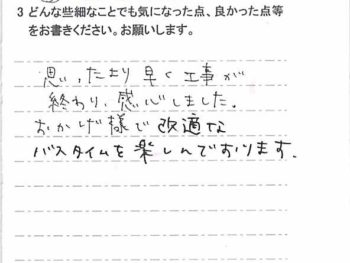 3 どんな些細なことでも気になった点、良かった点等
をお書きください。お願いします。
思ったより早く工事が
終わり、感心しました。
おかげ様で改適な
バスタイムを楽しんでおります。